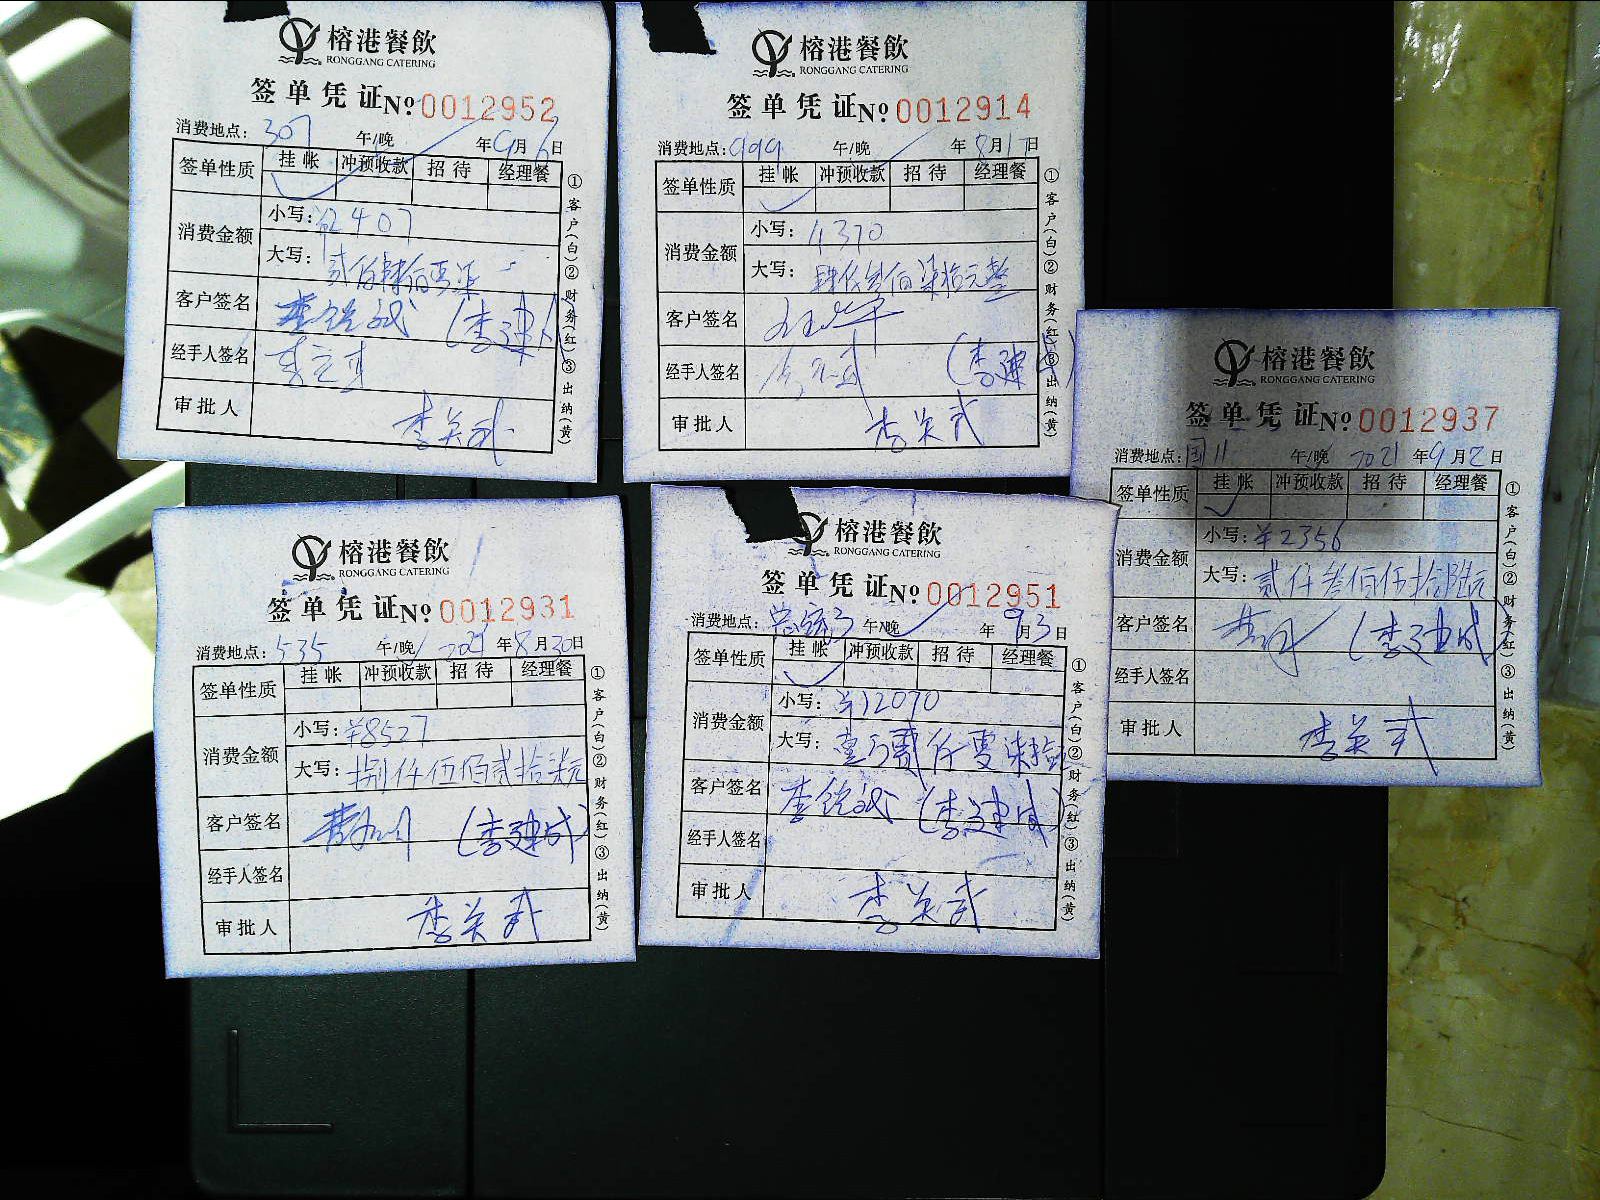 榕港餐飲
RONGGANG CATERING
签单凭证 № 0012952
消费地点: 307 午/晚 年 9月 6日
签单性质 挂帐 冲预收款 招待 经理餐
消费金额
小写: 2407
大写: 贰仟肆佰零柒
客户签名 (李建成)
经手人签名
审批人 李关武
①客户(白)②财务(红)③出纳(黄)
榕港餐飲
RONGGANG CATERING
签单凭证 № 0012914
消费地点: 999 午/晚 年 8月 日
签单性质 挂帐 冲预收款 招待 经理餐
消费金额
小写: 4370
大写: 肆仟叁佰柒拾元整
客户签名
经手人签名 (李建成)
审批人 李关武
①客户(白)②财务(红)③出纳(黄)
榕港餐飲
RONGGANG CATERING
签单凭证 № 0012937
消费地点: 国11 午/晚 2021年 9月 2日
签单性质 挂帐 冲预收款 招待 经理餐
消费金额
小写: ¥2356
大写: 贰仟叁佰伍拾陆元
客户签名 (李建成)
经手人签名
审批人 李关武
①客户(白)②财务(红)③出纳(黄)
榕港餐飲
RONGGANG CATERING
签单凭证 № 0012931
消费地点: 535 午/晚 2021年 8月 30日
签单性质 挂帐 冲预收款 招待 经理餐
消费金额
小写: ¥8527
大写: 捌仟伍佰贰拾柒元
客户签名 (李建成)
经手人签名
审批人 李关武
①客户(白)②财务(红)③出纳(黄)
榕港餐飲
RONGGANG CATERING
签单凭证 № 0012951
消费地点: 午/晚 年 9月 3日
签单性质 挂帐 冲预收款 招待 经理餐
消费金额
小写: ¥12070
大写: 壹万贰仟零柒拾元
客户签名 (李建成)
经手人签名
审批人 李关武
①客户(白)②财务(红)③出纳(黄)